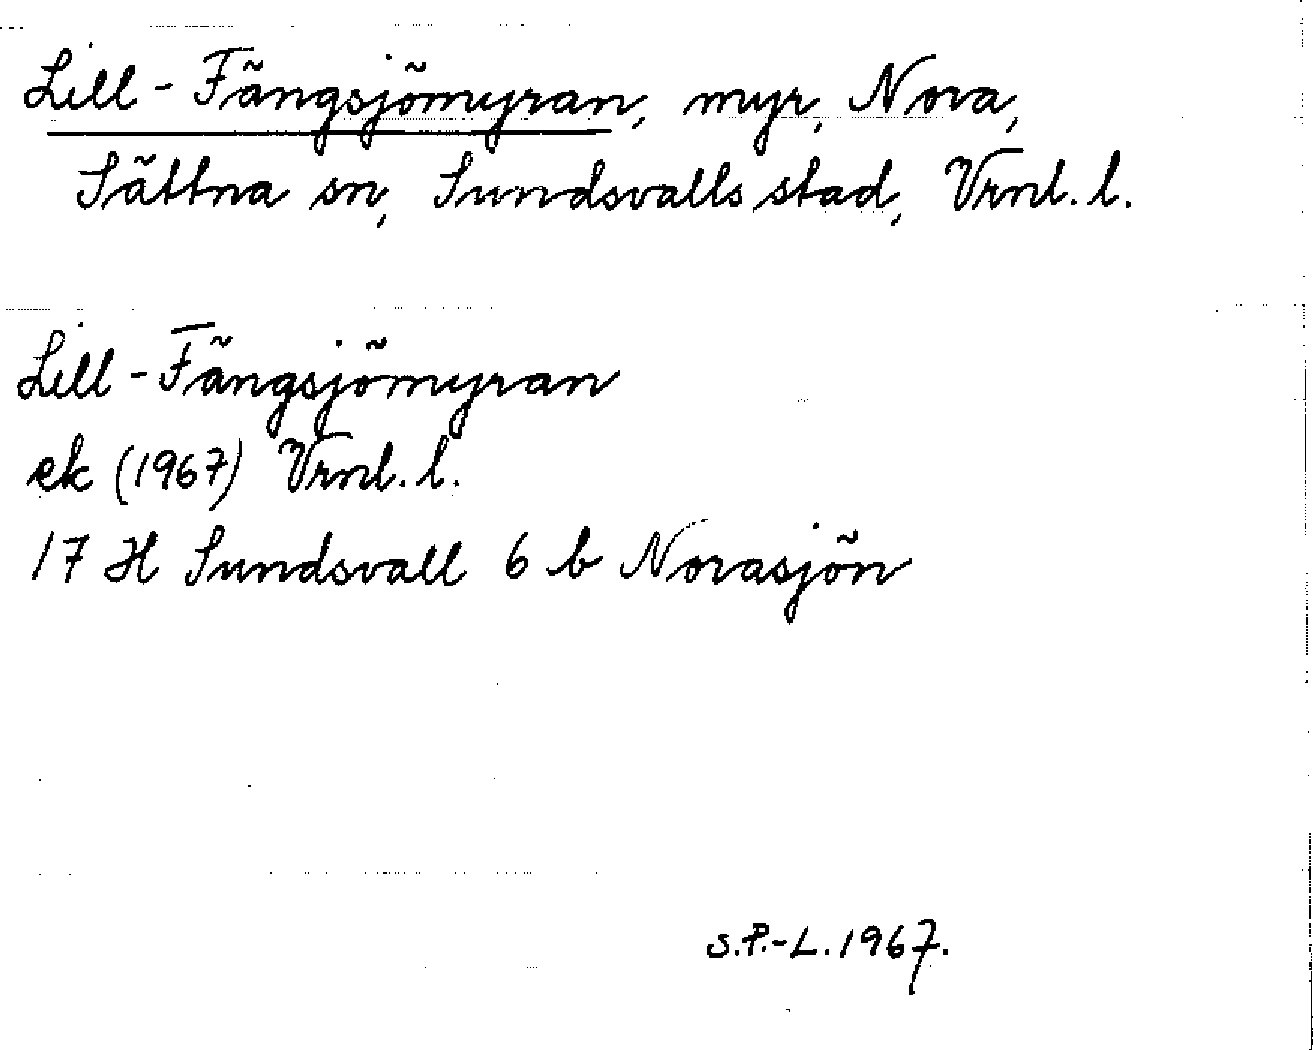 Lill-Fängsjömyran, myr, Nova,
Sättna sn, Sundsvalls stad, Vrnl. l.
Lill-Fängsjömyran
ek (1967) Vrnl. l.
17 H Sundsvall 6 b Novasjön
S.P.-L. 1967.